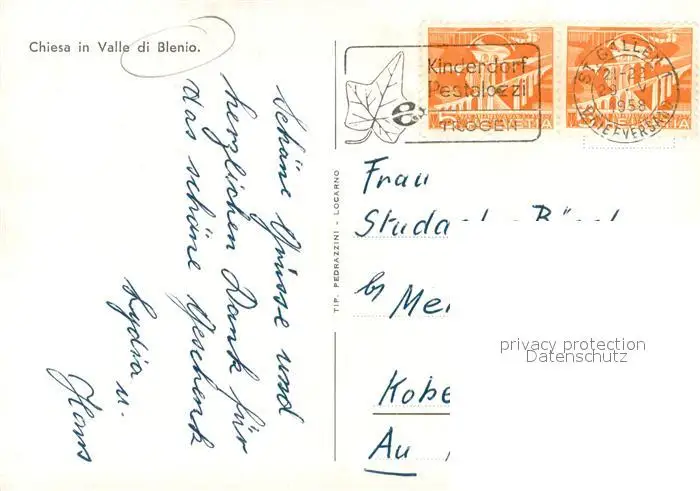 Chiesa in Valle di Blenio.
Schöne Grüsse und
herzlichen Dank für
das schöne Geschenk
Lydia u.
Hans
TIP. PEDRAZZINI - LOCARNO
Kinderdorf
Pestalozzi
TROGEN
ST. GALLEN
21-22
1958
BRIEFVERSAND
HELVETIA
Frau
by
Au
privacy protection
Datenschutz